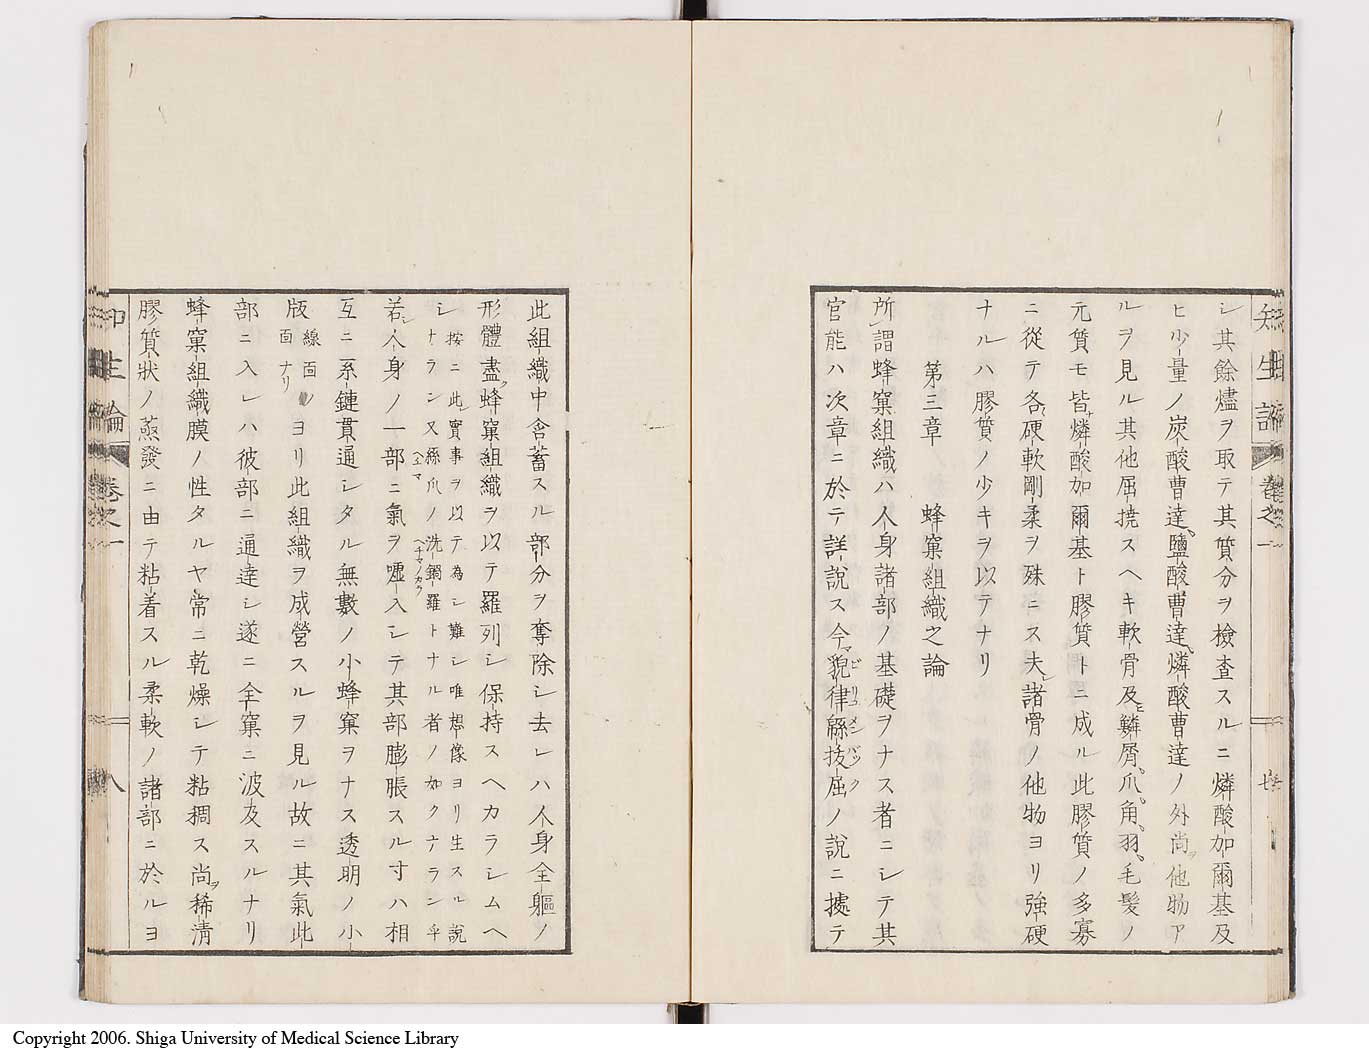 シ其餘燼ヲ取テ其質分ヲ檢査スルニ燐酸加爾基及
ヒ少量ノ炭酸曹達、鹽酸曹達、燐酸曹達ノ外尚ヲ他物ア
ルヲ見ル其他屈撓スヘキ軟骨及ヒ鱗屑、爪、角、羽、毛髪ノ
元質モ皆ナ燐酸加爾基ト膠質トニ成ル此膠質ノ多寡
ニ從テ各硬軟剛柔ヲ殊ニス夫レ諸骨ノ他物ヨリ強硬
ナルハ膠質ノ少キヲ以テナリ
第三章 蜂窠組織之論
所謂蜂窠組織ハ人身諸部ノ基礎ヲナス者ニシテ其
官能ハ次章ニ於テ詳説ス今マ貌律緜抜屈ノ説ニ據テ
此組織中含蓄スル部分ヲ奪除シ去レハ人身全軀ノ
形體盡ク蜂窠組織ヲ以テ羅列シ保持スヘカラシムヘ
シ 按ニ此實事ヲ以テ為シ難シ唯想像ヨリ生スル説
ナラン又絲爪ノ洗鍋羅トナル者ノ如クナラン乎
若シ人身ノ一部ニ氣ヲ噓入シテ其部膨脹スル寸ハ相
互ニ一系鏈貫通シタル無數ノ小蜂窠ヲナス透明ノ小
版 線面ノ面ナリ ヨリ此組織ヲ成營スルヲ見ル故ニ其氣此
部ニ入レハ彼部ニ通達シ遂ニ全窠ニ波及スルナリ
蜂窠組織膜ノ性タルヤ常ニ乾燥シテ粘稠ス尚ヲ稀清
膠質狀ノ蒸發ニ由テ粘着スル柔軟ノ諸部ニ於ルヨ
卷之一
八
Copyright 2006. Shiga University of Medical Science Library